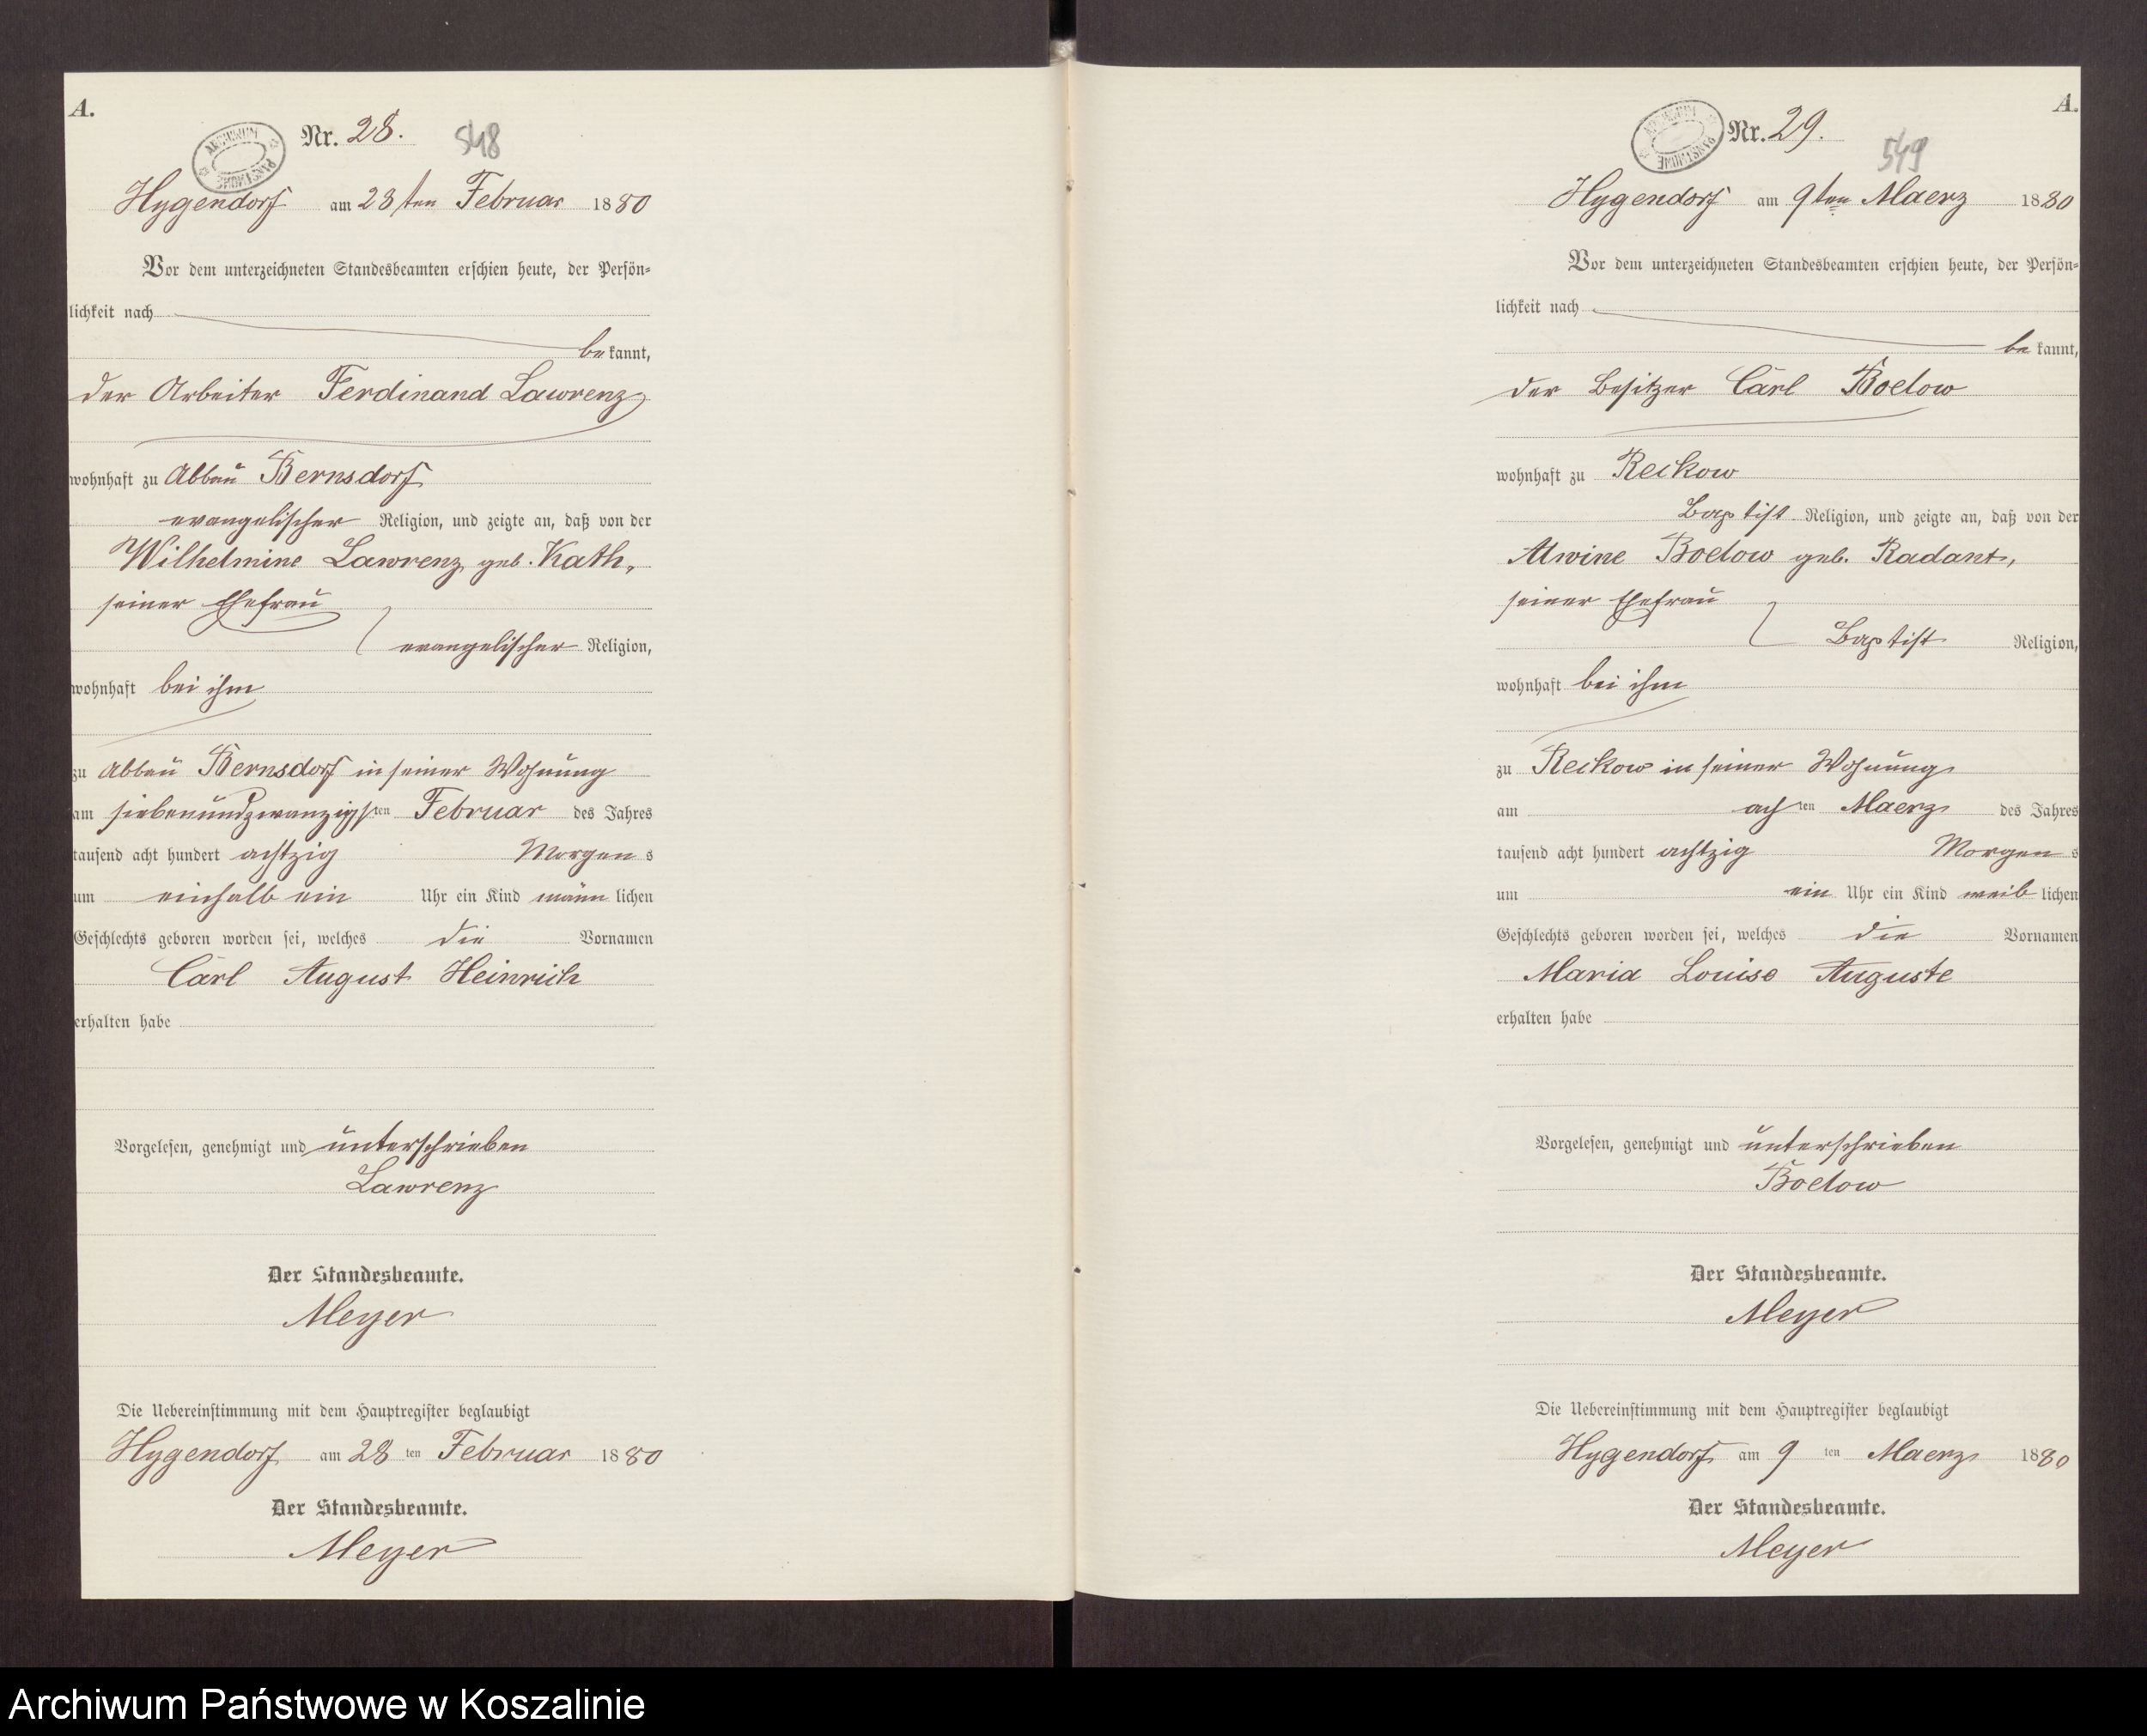 A.
Nr. 28.
548
ARCHIWUM PAŃSTWOWE
Hygendorf am 28ten Februar 1880
Vor dem unterzeichneten Standesbeamten erschien heute, der Persön-
lichkeit nach
be kannt,
der Arbeiter Ferdinand Lawrenz
wohnhaft zu Abbau Bernsdorf
evangelischer Religion, und zeigte an, daß von der
Wilhelmine Lawrenz geb. Kath,
seiner Ehefrau
evangelischer Religion,
wohnhaft bei ihm
zu Abbau Bernsdorf in seiner Wohnung
am siebenundzwanzigsten Februar des Jahres
tausend acht hundert achtzig Morgens
um einhalb ein Uhr ein Kind männlichen
Geschlechts geboren worden sei, welches die Vornamen
Carl August Heinrich
erhalten habe
Vorgelesen, genehmigt und unterschrieben
Lawrenz
Der Standesbeamte.
Meyer
Die Uebereinstimmung mit dem Hauptregister beglaubigt
Hygendorf am 28 ten Februar 1880
Der Standesbeamte.
Meyer
A.
Nr. 29.
549
ARCHIWUM PAŃSTWOWE
Hygendorf am 9ten Maerz 1880
Vor dem unterzeichneten Standesbeamten erschien heute, der Persön-
lichkeit nach
be kannt,
der Besitzer Carl Boelow
wohnhaft zu Reckow
Baptist Religion, und zeigte an, daß von der
Alwine Boelow geb. Radant,
seiner Ehefrau
Baptist Religion,
wohnhaft bei ihm
zu Reckow in seiner Wohnung
am achten Maerz des Jahres
tausend acht hundert achtzig Morgens
um ein Uhr ein Kind weiblichen
Geschlechts geboren worden sei, welches die Vornamen
Maria Louise Auguste
erhalten habe
Vorgelesen, genehmigt und unterschrieben
Boelow
Der Standesbeamte.
Meyer
Die Uebereinstimmung mit dem Hauptregister beglaubigt
Hygendorf am 9 ten Maerz 1880
Der Standesbeamte.
Meyer
Archiwum Państwowe w Koszalinie